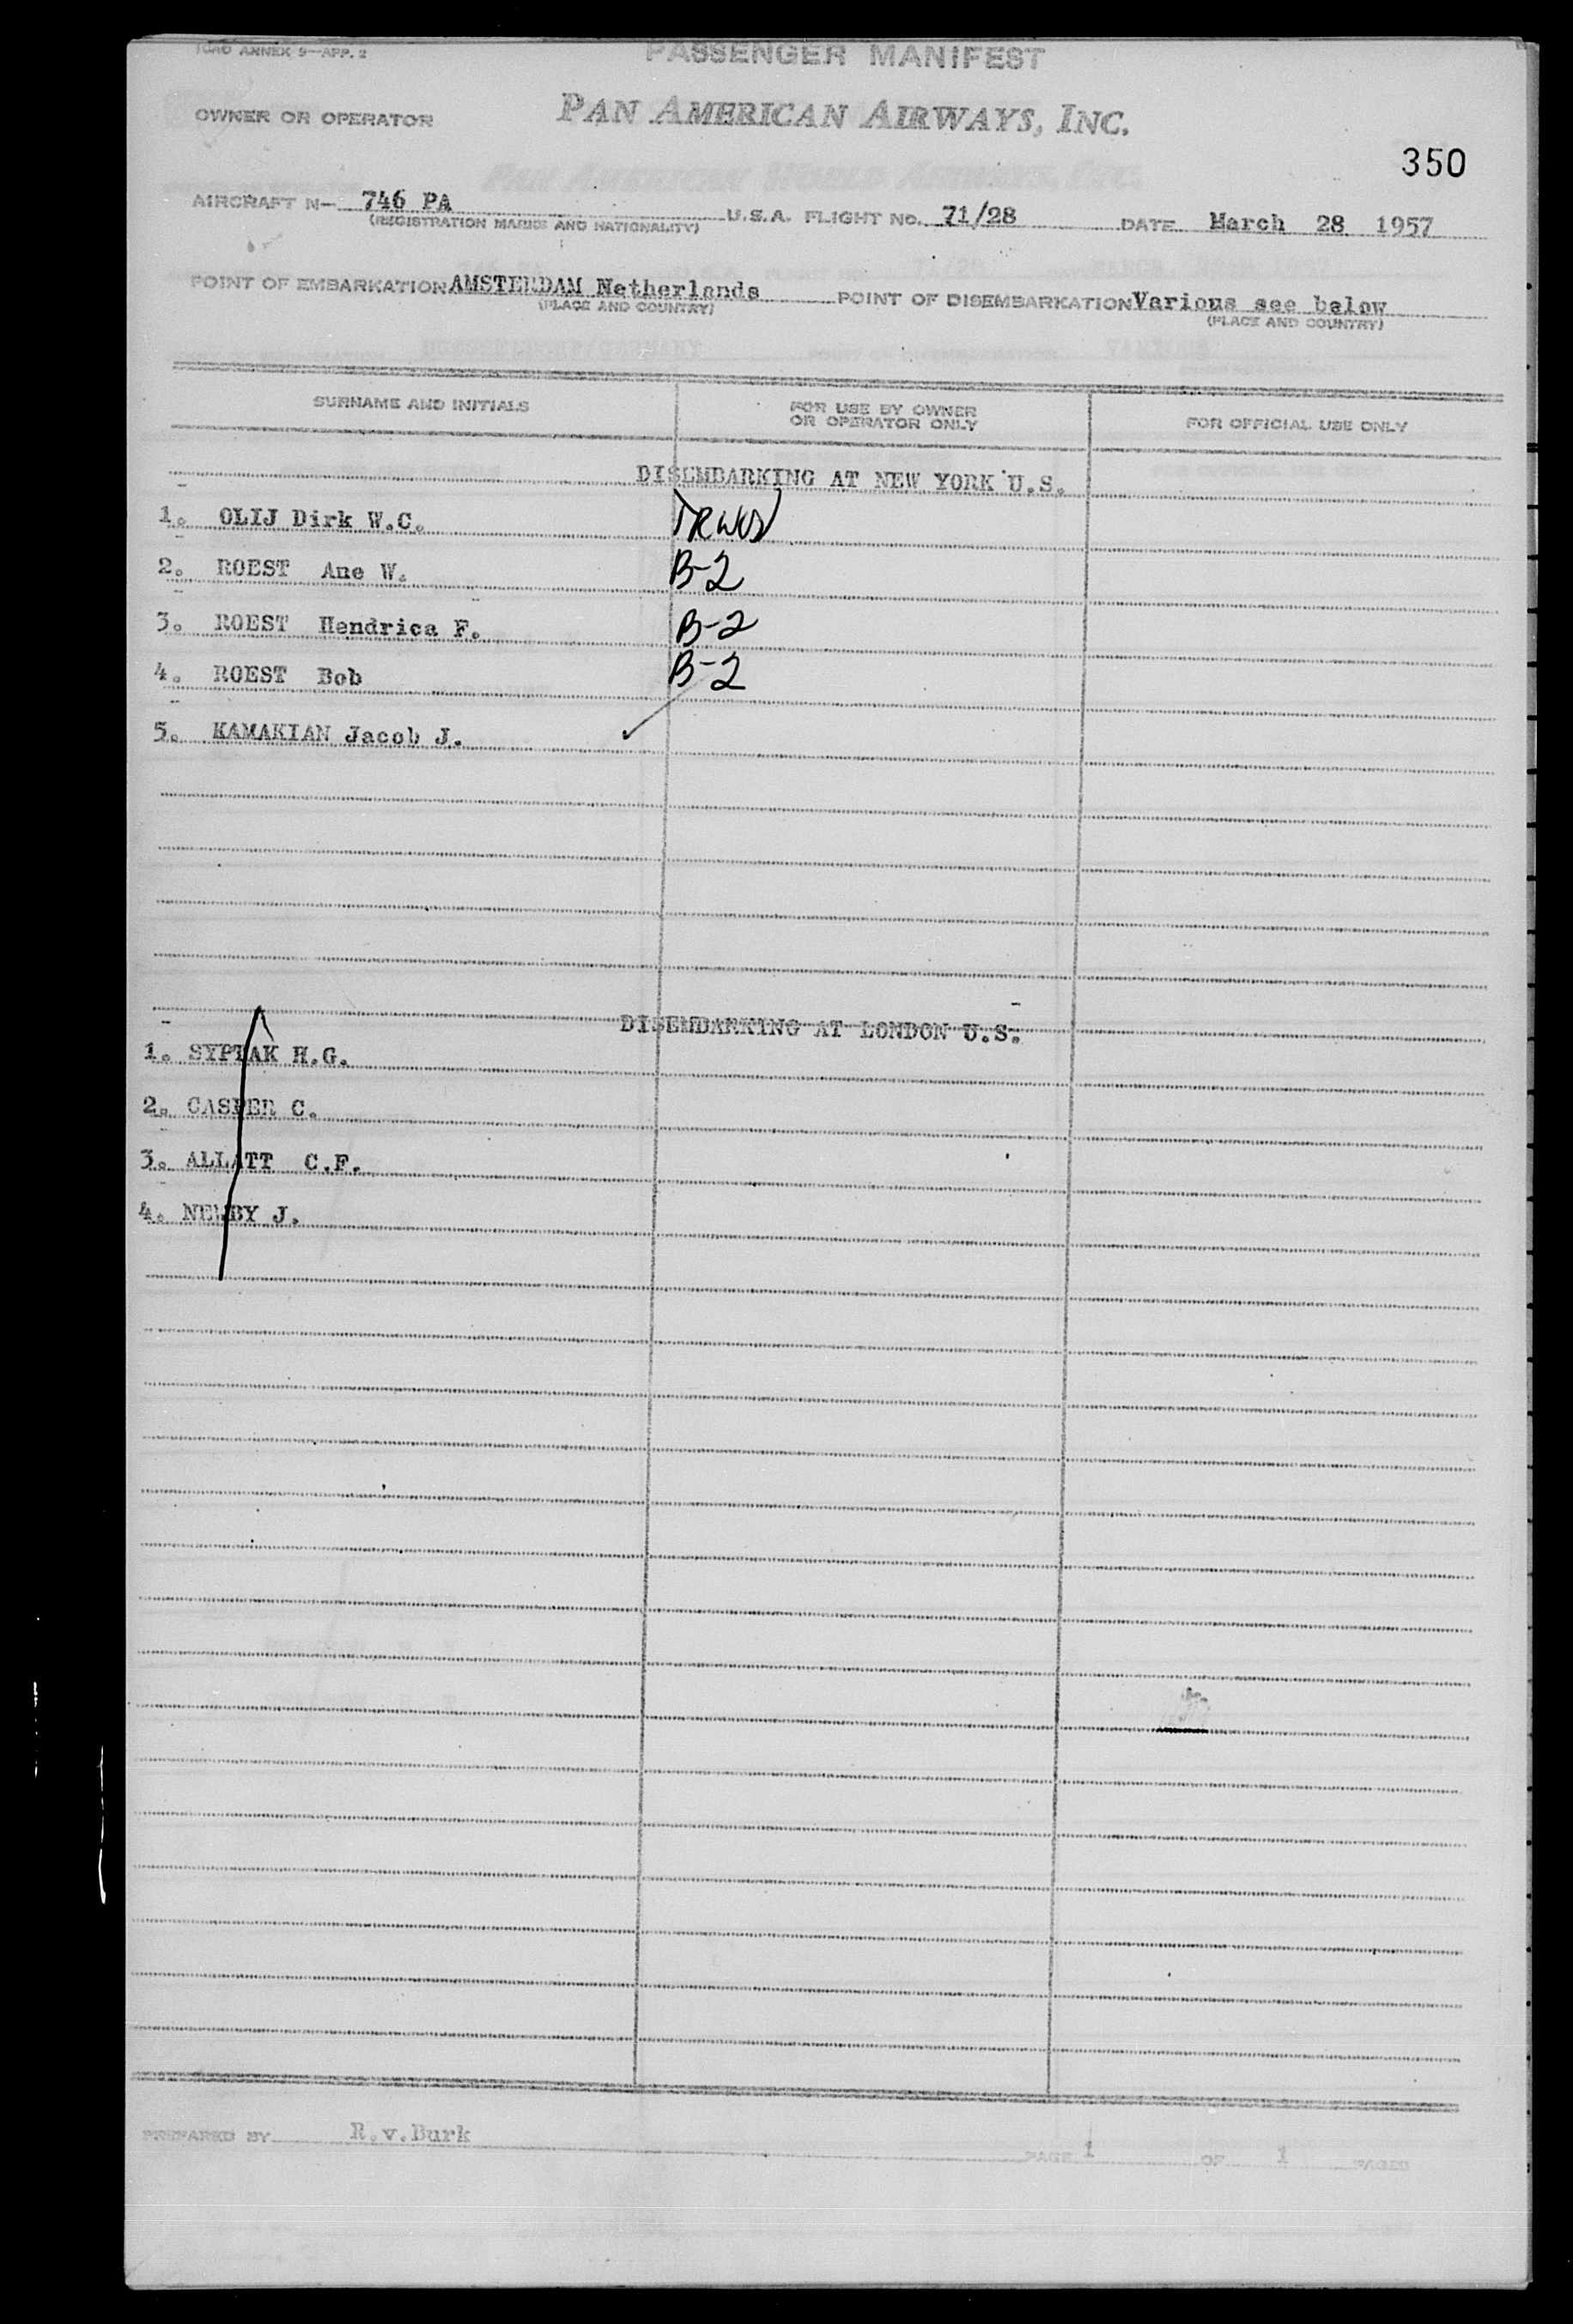 ICAO ANNEX 9—APP. 2
PASSENGER MANIFEST
OWNER OR OPERATOR PAN AMERICAN AIRWAYS, INC.
350
AIRCRAFT N— 746 PA U.S.A. FLIGHT NO. 71/28 DATE March 28 1957
(REGISTRATION MARKS AND NATIONALITY)
POINT OF EMBARKATION AMSTERDAM Netherlands POINT OF DISEMBARKATION Various see below
(PLACE AND COUNTRY) (PLACE AND COUNTRY)
SURNAME AND INITIALS FOR USE BY OWNER OR OPERATOR ONLY FOR OFFICIAL USE ONLY
DISEMBARKING AT NEW YORK U.S.
1. OLIJ Dirk W.C. TRWOV
2. ROEST Ane W. B-2
3. ROEST Hendrica F. B-2
4. ROEST Bob B-2
5. KAMAKIAN Jacob J. ✓
DISEMBARKING AT LONDON U.S.
1. SYPTAK H.G.
2. CASPER C.
3. ALLATT C.F.
4. NEWBY J.
PREPARED BY R.v.Burk PAGE 1 OF 1 PAGES